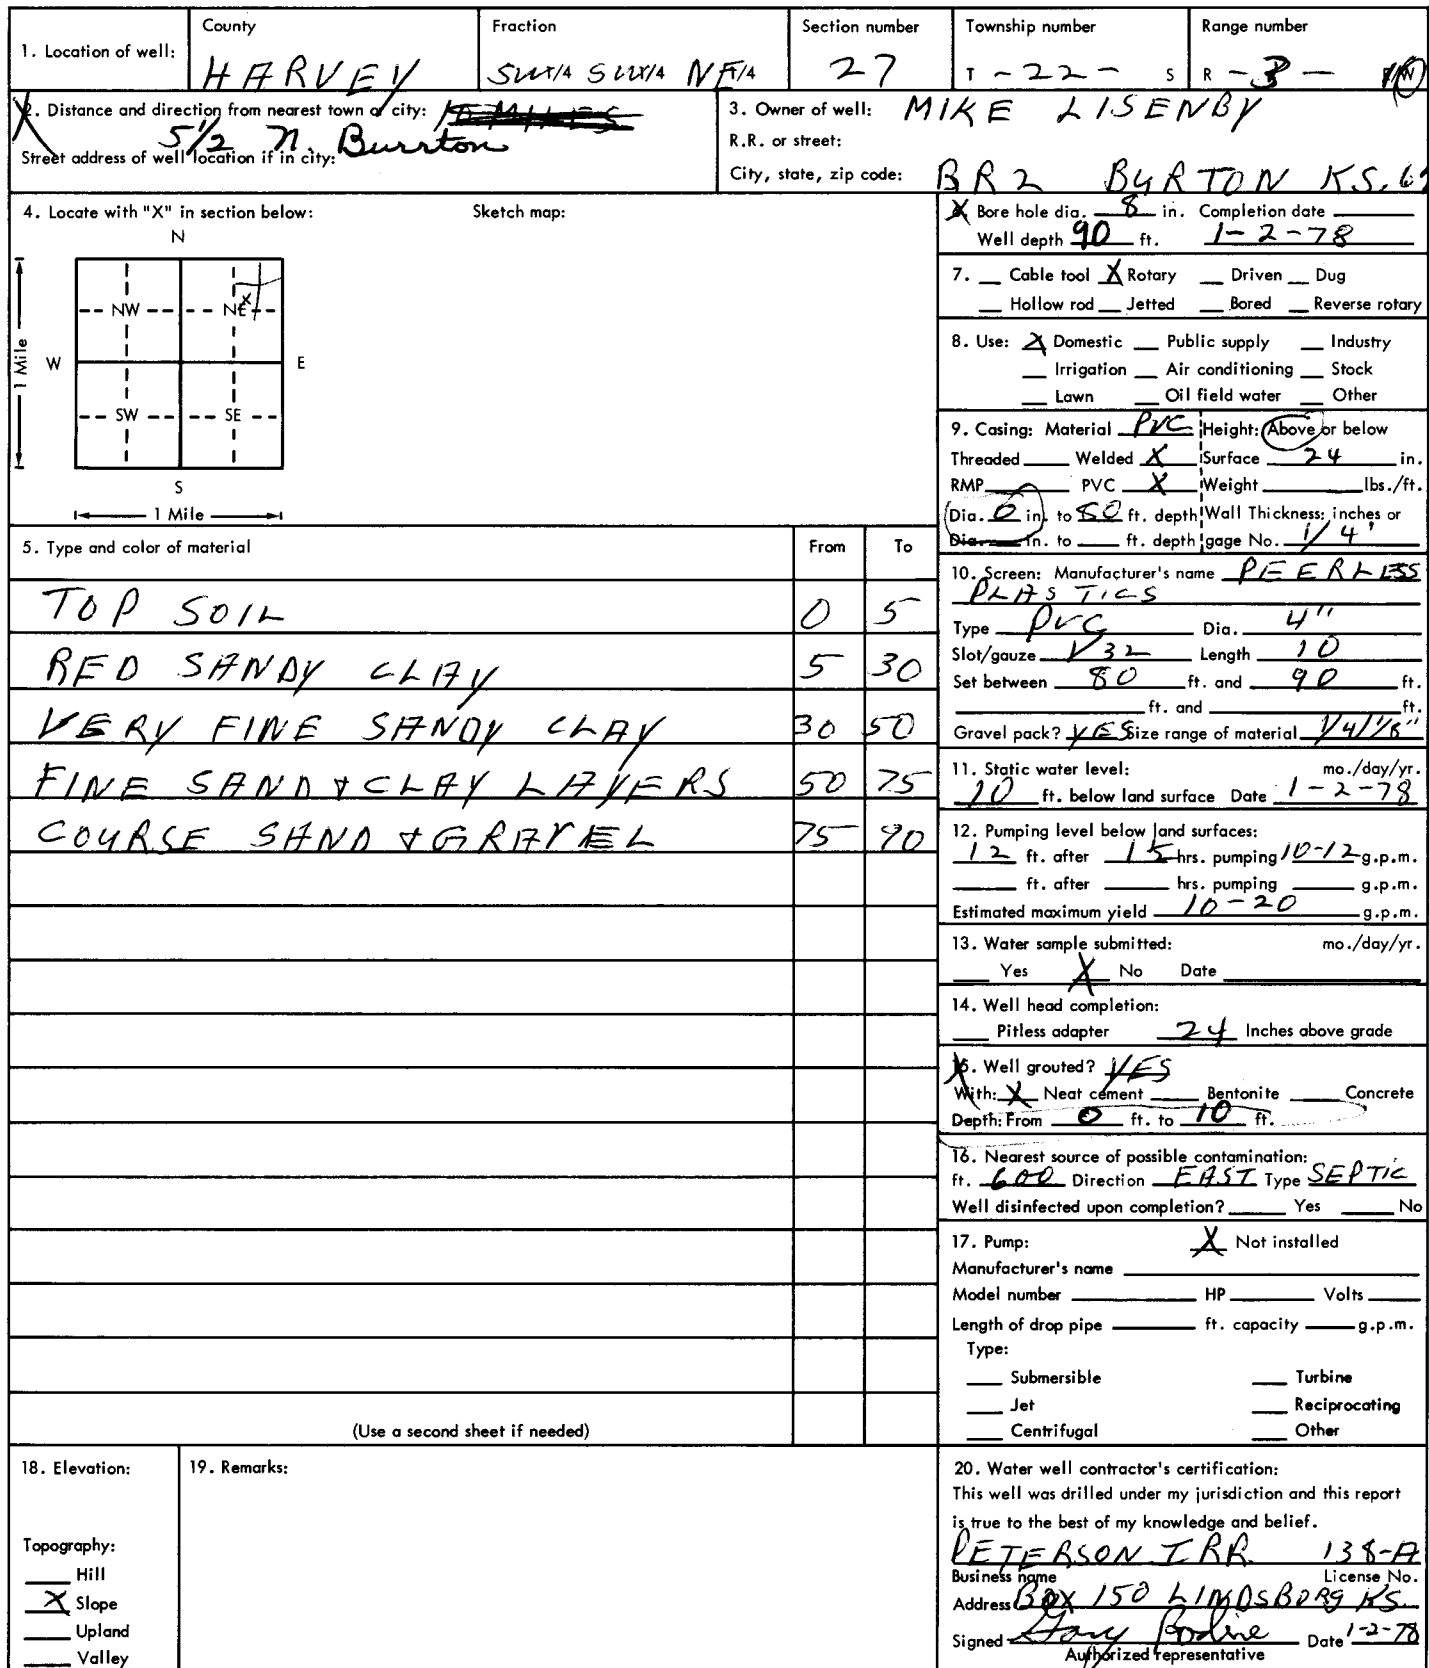 County Fraction Section number Township number Range number
1. Location of well: HARVEY SW1/4 SW1/4 NE1/4 27 T -22- S R -3- W
2. Distance and direction from nearest town or city:
5 1/2 N. Burrton
Street address of well location if in city:
3. Owner of well: MIKE LISENBY
R.R. or street:
City, state, zip code: BR2 BURTON KS.
4. Locate with "X" in section below: Sketch map:
N
NW NE
W E
1 Mile
SW SE
S
1 Mile
X
6. Bore hole dia. 8 in. Completion date
Well depth 90 ft. 1-2-78
7. __ Cable tool X Rotary __ Driven __ Dug
__ Hollow rod __ Jetted __ Bored __ Reverse rotary
8. Use: X Domestic __ Public supply __ Industry
__ Irrigation __ Air conditioning __ Stock
__ Lawn __ Oil field water __ Other
9. Casing: Material PVC Height: Above or below
Threaded ___ Welded X Surface 24 in.
RMP ___ PVC X Weight ___ lbs./ft.
Dia. 0 in. to 80 ft. depth Wall Thickness: inches or
Dia. ___ in. to ___ ft. depth gage No. 1/4"
5. Type and color of material From To
TOP SOIL 0 5
RED SANDY CLAY 5 30
VERY FINE SANDY CLAY 30 50
FINE SAND & CLAY LAYERS 50 75
COURSE SAND & GRAVEL 75 90
(Use a second sheet if needed)
10. Screen: Manufacturer's name PEERLESS
PLASTICS
Type PVC Dia. 4"
Slot/gauze 1/32 Length 10
Set between 80 ft. and 90 ft.
___ ft. and ___ ft.
Gravel pack? YES Size range of material 1/4/1/8"
11. Static water level: mo./day/yr.
10 ft. below land surface Date 1-2-78
12. Pumping level below land surfaces:
12 ft. after 15 hrs. pumping 10-12 g.p.m.
___ ft. after ___ hrs. pumping ___ g.p.m.
Estimated maximum yield 10-20 g.p.m.
13. Water sample submitted: mo./day/yr.
__ Yes X No Date
14. Well head completion:
__ Pitless adapter 24 Inches above grade
15. Well grouted? YES
With: X Neat cement ___ Bentonite ___ Concrete
Depth: From 0 ft. to 10 ft.
16. Nearest source of possible contamination:
ft. 600 Direction EAST Type SEPTIC
Well disinfected upon completion? ___ Yes ___ No
17. Pump: X Not installed
Manufacturer's name
Model number ___ HP ___ Volts ___
Length of drop pipe ___ ft. capacity ___ g.p.m.
Type:
__ Submersible __ Turbine
__ Jet __ Reciprocating
__ Centrifugal __ Other
18. Elevation:
Topography:
__ Hill
X Slope
__ Upland
__ Valley
19. Remarks:
20. Water well contractor's certification:
This well was drilled under my jurisdiction and this report
is true to the best of my knowledge and belief.
PETERSON IRR. 138-A
Business name License No.
Address BOX 150 LINDSBORG KS.
Signed Gary Bodine Date 1-2-78
Authorized representative